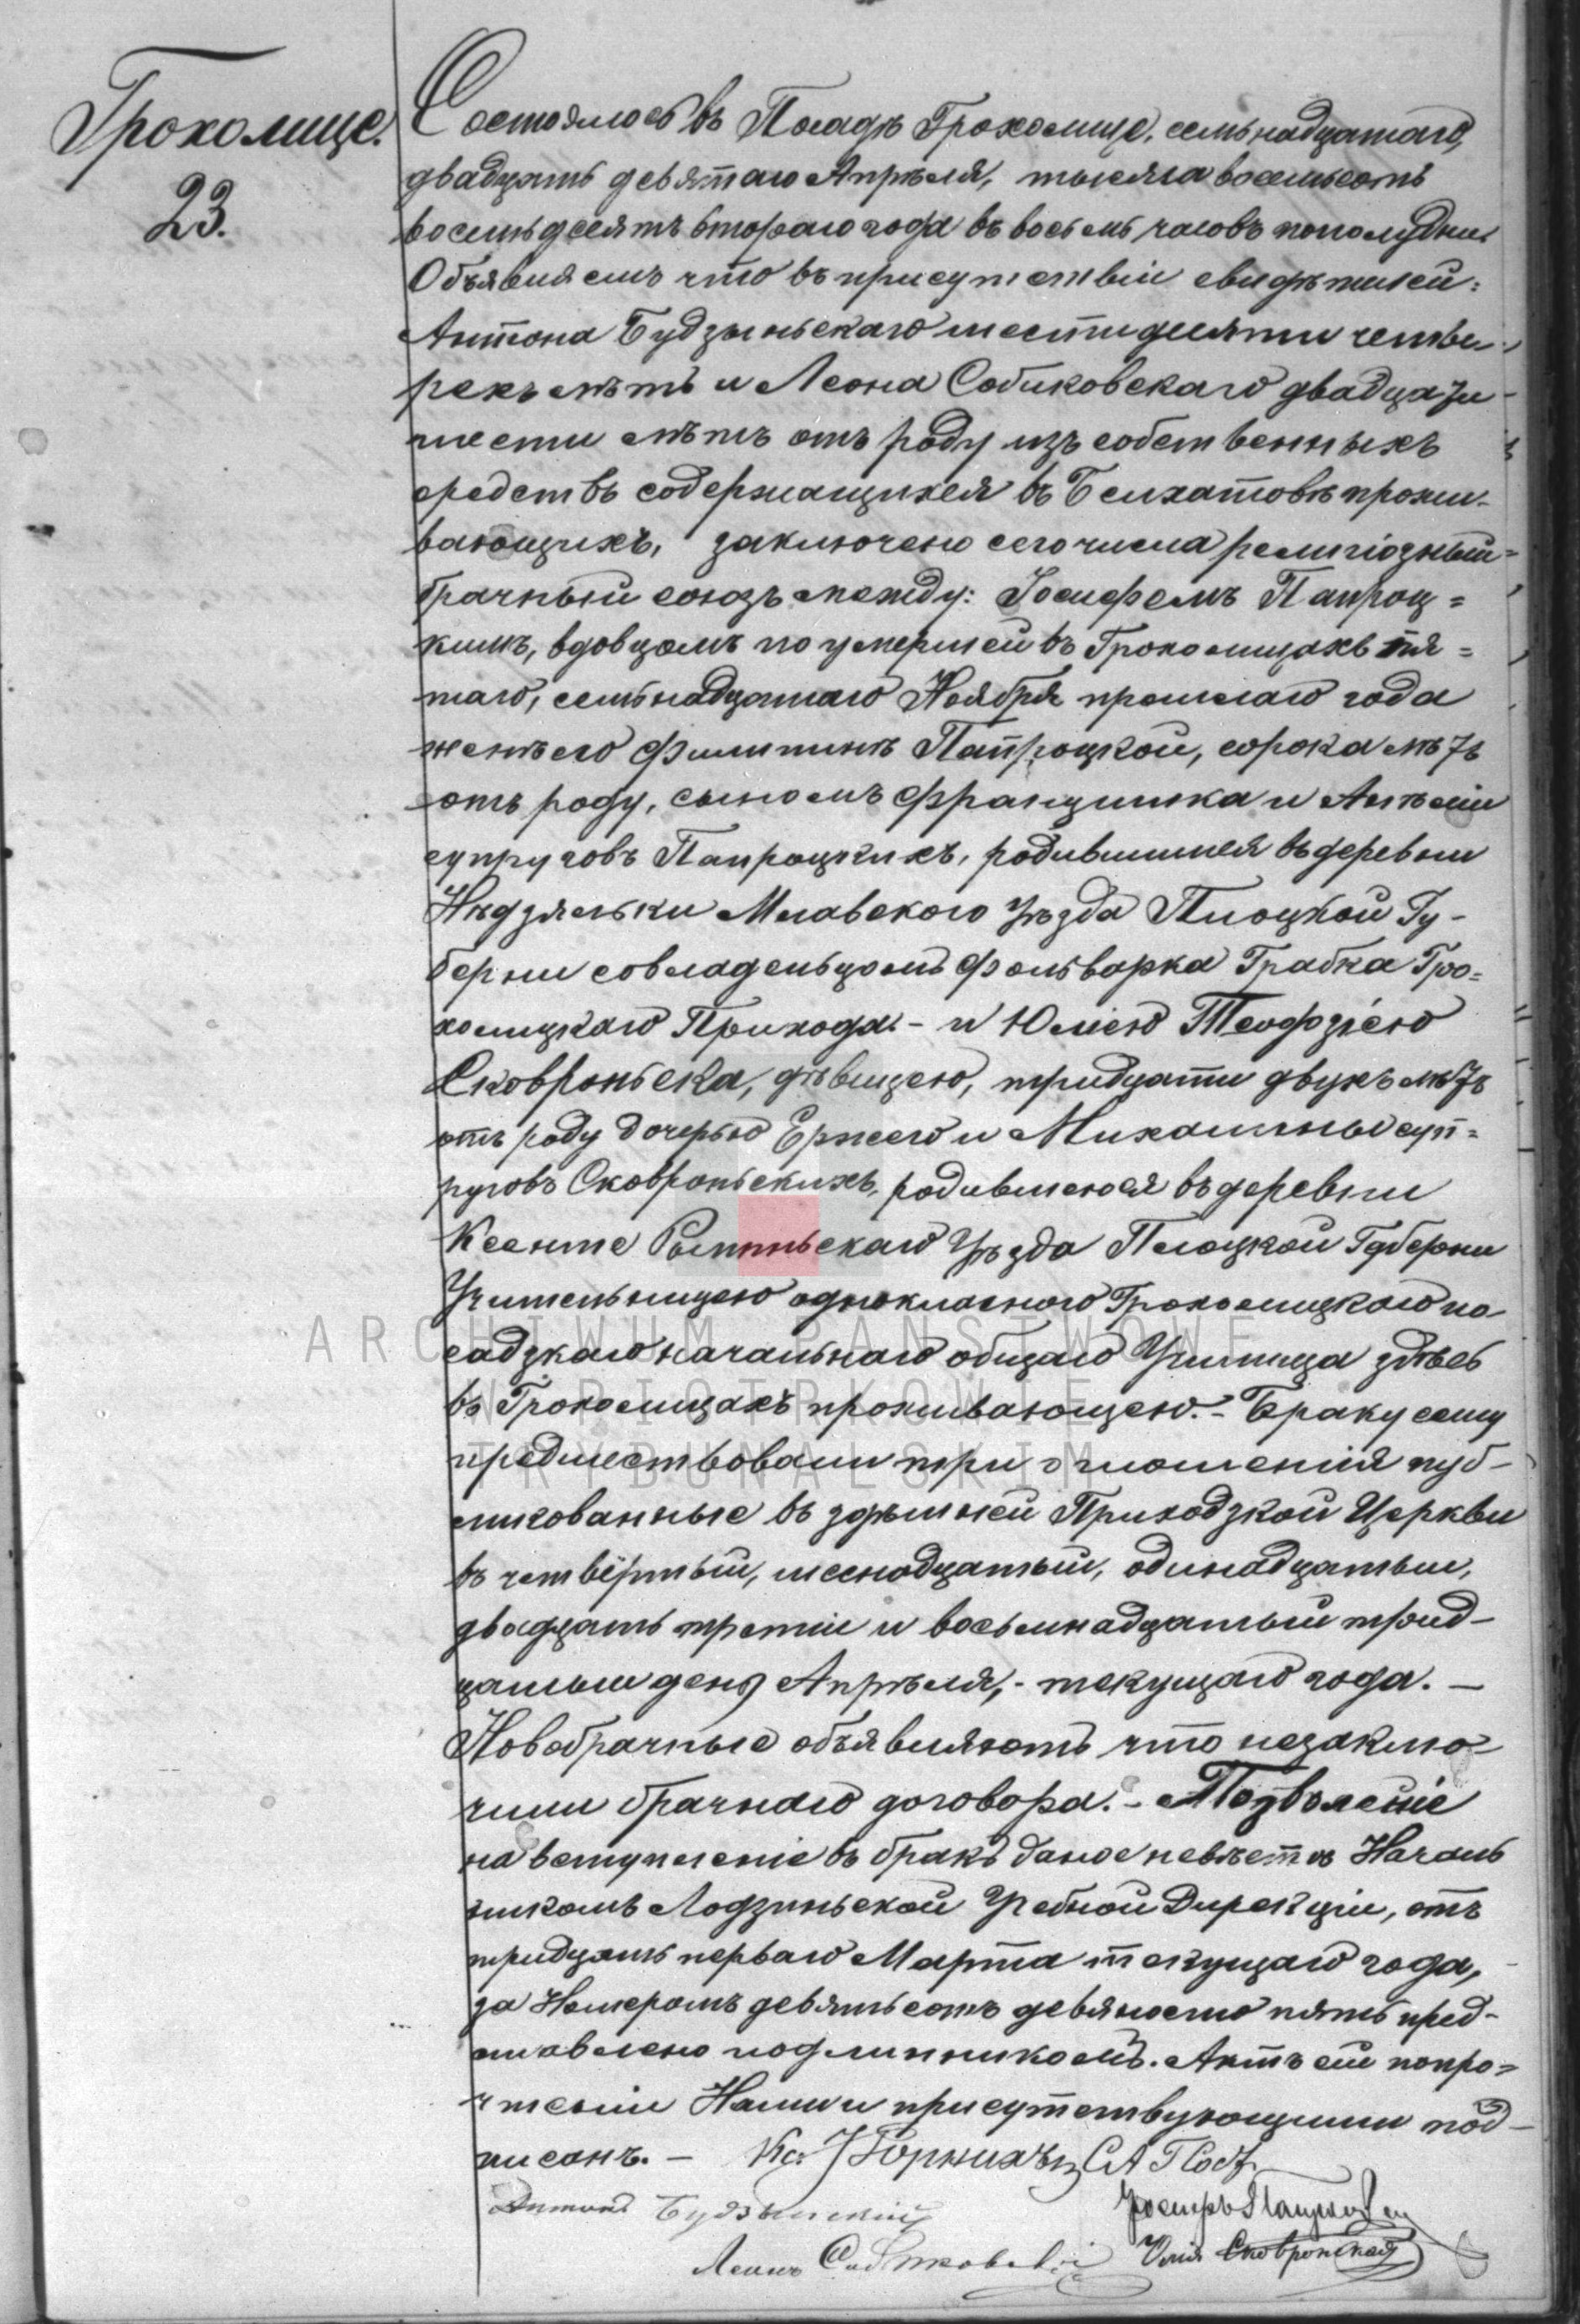 Грохолице.
23.
Состоялось въ Посадѣ Грохолице, семьнадцатаго,
двадцать девятаго Апрѣля, тысяча восемьсотъ
восемьдесятъ втораго года въ восемь часовъ пополудни.
Объявляемъ что въ присутствіи свидѣтелей:
Антона Будзыньскаго шестидесяти четы-
рехъ лѣтъ и Леона Собиковскаго двадцати
шести лѣтъ отъ роду изъ собственныхъ
средствъ содержащихся въ Белхатовѣ прожи-
вающихъ, заключено сего числа религіозный
брачный союзъ между: Іосифомъ Папроц=
кимъ, вдовцомъ по умершей въ Грохолицахъ пя=
таго, семьнадцатаго Ноября прошлаго года
женѣ его Филипинѣ Папроцкой, сорока лѣтъ
отъ роду, сыномъ Францишка и Анѣли
супруговъ Папроцкихъ, родившимся въ деревни
Нѣдзялки Млавского Уѣзда Плоцкой Гу-
берни совладельцомъ Фольварка Грабка Гро=
холицкаго Прихода.- и Юліею Теофзіею
Сковроньска, дѣвицею, тридцати двухъ лѣтъ
отъ роду дочерью Ержего и Михалины суп=
руговъ Сковроньскихъ, родившеюся въ деревни
Ксенте Рыпиньскаго Уѣзда Плоцкой Губерни
Учительницею однокласного Грохолицкаго по-
садзкаго начальнаго общаго Училища здѣсь
въ Грохолицахъ проживающею.- Браку сему
предшествовали три оглошенія пуб-
ликованные въ здѣшней Приходзкой Церкви
въ четвёртый, шеснадцатый, одинадцатый,
двадцать третій и восьмнадцатый трид-
цатый день Апрѣля,- текущаго года. —
Новобрачные объявляютъ что незаклю-
чили брачнаго договора.- Позволеніе
на вступленіе въ бракъ даное невѣстѣ Началь
никомъ Лодзиньской Учебной Дирекціи, отъ
тридцать перваго Марта текущаго года,
за Номеромъ девятьсотъ девяносто пять пред-
ставлено подлинникомъ. Актъ сей попро=
чтеніи Нами и присутствующими под-
писанъ. —
Антонъ Будзыньскій
Іосифъ Папроцкій
Леонъ Собиковскій Юлія Сковронская
ARCHIWUM PAŃSTWOWE
W PIOTRKOWIE
TRYBUNALSKIM